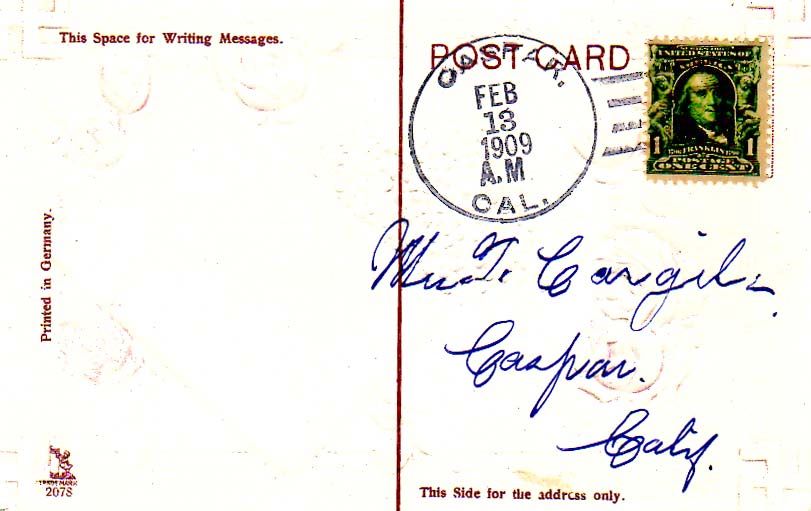 This Space for Writing Messages.
POST CARD
CASPAR.
FEB
13
1909
A.M
CAL.
SERIES 1902
UNITED STATES OF AMERICA
1 FRANKLIN 1
POSTAGE
ONE CENT
T. Cargil
Caspar.
Calif.
Printed in Germany.
TRADE MARK
2078
This Side for the address only.